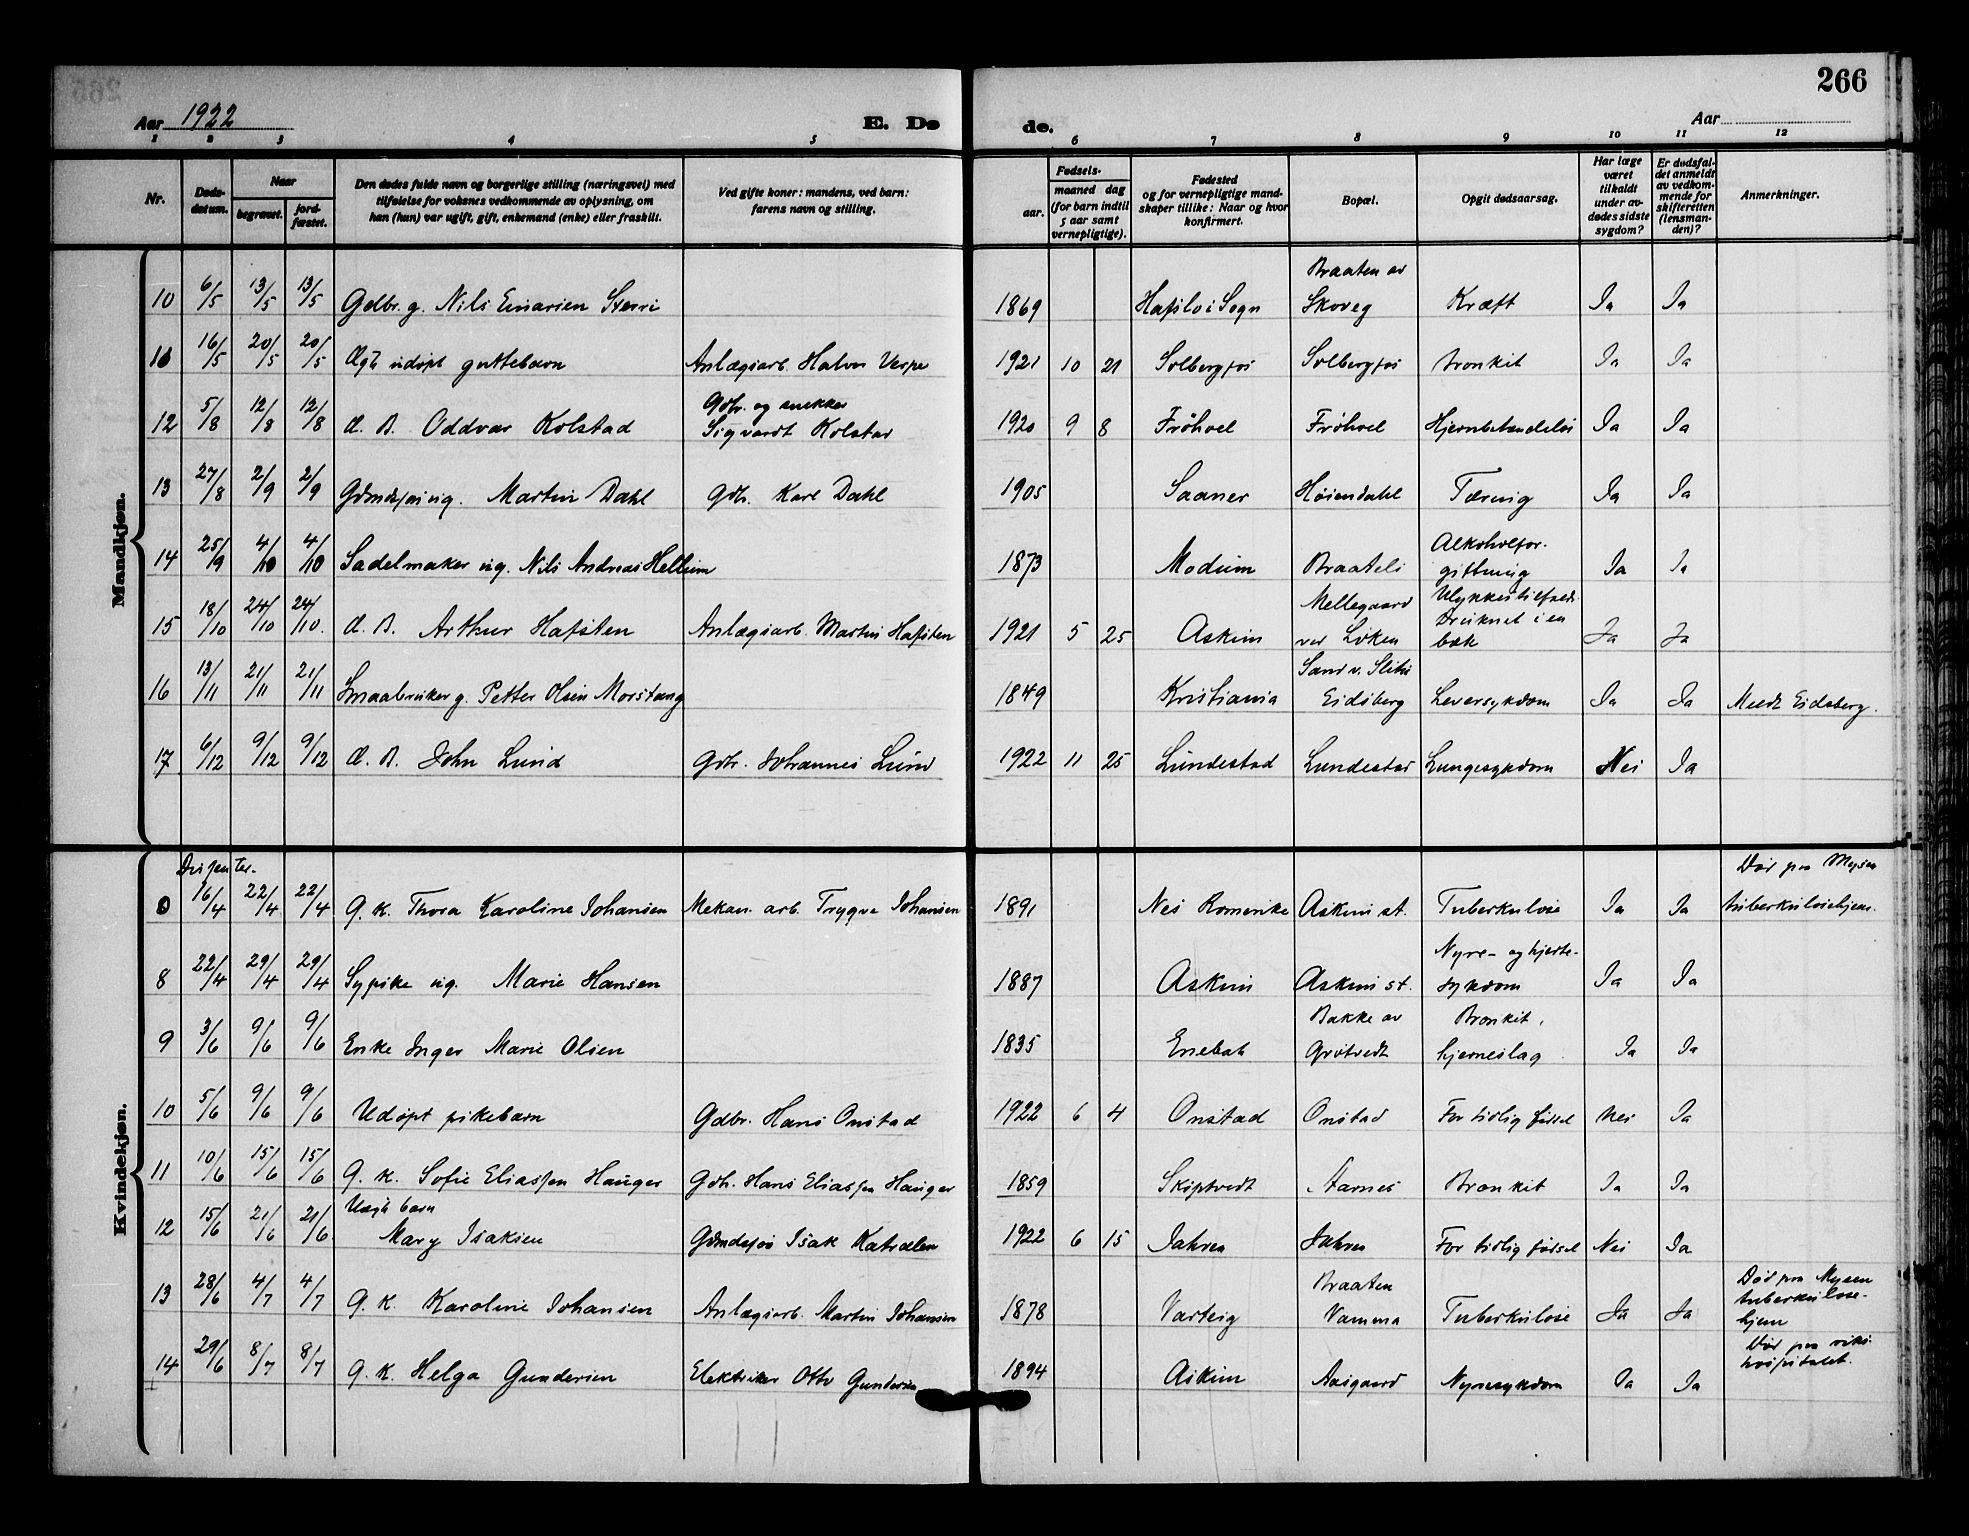 266
Aar 1922
E. Dø
de.
Aar
1 2 3 4 5 6 7 8 9 10 11 12
Nr.
Døds-
datum.
Naar
begravet.
jord-
fæstet.
Den dødes fulde navn og borgerlige stilling (næringsvei) med
tilføielse for voksnes vedkommende av oplysning, om
han (hun) var ugift, gift, enkemand (enke) eller fraskilt.
Ved gifte koner: mandens, ved barn:
farens navn og stilling.
Fødsels-
aar.
maaned dag
(for barn indtil
5 aar samt
vernepligtige).
Fødested
og for vernepligtige mand-
skaper tillike: Naar og hvor
konfirmert.
Bopæl.
Opgit dødsaarsag.
Har læge
været
tilkaldt
under av-
dødes sidste
sygdom?
Er dødsfal-
det anmeldt
av vedkom-
mende for
skifteretten
(lensman-
den)?
Anmerkninger.
Mandkjøn.
Braaten av
10 6/5 13/5 13/5 Gdbr. g. Nils Einarsen Sterri 1869 Hafslo i Sogn Skoveg Kræft Ja Ja
16/5 20/5 20/5 Ægt. udøpt guttebarn Anlægsarb. Halvor Vespe 1921 10 21 Solbergfos Solbergfos bronkit Ja Ja
Gdbr. og snekker
12 5/8 12/8 12/8 Æ. B. Oddvar Kolstad Sigvardt Kolstad 1920 9 8 Frøhoel Frøhoel Hjernbetændelse Ja Ja
13 27/8 2/9 2/9 Gdmdsøn ug. Martin Dahl Gdb. Karl Dahl 1905 Saaner Høiendahl Tæring Ja Ja
Alkoholfor-
14 25/9 4/10 4/10 Sadelmaker ug. Nils Andreas Hellum 1873 Modum Braateli giftning Ja Ja
Mellegaard Ulykkestilfælde.
Druknet i en
15 18/10 24/10 24/10. Æ. B. Arthur Hafsten Anlægsarb. Martin Hafsten 1921 5 25 Askim ved Løken bæk Ja Ja
Sand v. Slitu
16 13/11 21/11 21/11 Smaabruker g. Petter Olsen Morstang 1849 Kristiania Eidsberg Leversykdom Ja Ja Meldt Eidsberg.
17 6/12 9/12 9/12 Æ. B. John Lund Gdbr. Johannes Lund 1922 11 25 Lundestad Lundestad Lungesykdom Nei Ja
Kvindekjøn.
Dissenter. Død paa Mysen
16/4 22/4 22/4 G. k. Thora Karoline Johansen Mekan. arb. Trygve Johansen 1891 Nes Romerike Askim st. Tuberkulose Ja Ja tuberkulosehjem.
Nyre- og hjerte-
8 22/4 29/4 29/4 Sypike ug. Marie Hansen 1887 Askim Askim st. sykdom Ja Ja
Bakke av Bronkit,
9 3/6 9/6 9/6 Enke Inger Marie Olsen 1835 Enebak Grøtvedt hjerneslag Ja Ja
10 5/6 9/6 9/6 Udøpt pikebarn Gdbr. Hans Onstad 1922 6 4 Onstad Onstad For tidlig fødsel Nei Ja
11 10/6 15/6 15/6 G. k. Sofie Eliassen Hauger Gdb. Hans Eliassen Hauger 1859 Skiptvedt Aarnes Bronkit Ja Ja
Uægt barn
12 15/6 21/6 21/6 Mary Isaksen Gdmdsøn Isak Katralen 1922 6 15 Jahren Jahren For tidlig fødsel Nei Ja
Braaten Død paa Mysen
tuberkulose-
13 28/6 4/7 4/7 G. k. Karoline Johansen Anlægsarb. Martin Johansen 1878 Varteig Vamma Tuberkulose Ja Ja hjem
Død paa riks-
hospitalet.
14 29/6 8/7 8/7 G. k. Helga Gundersen Elektriker Otto Gundersen 1894 Askim Aasgaard Nyresykdom Ja Ja